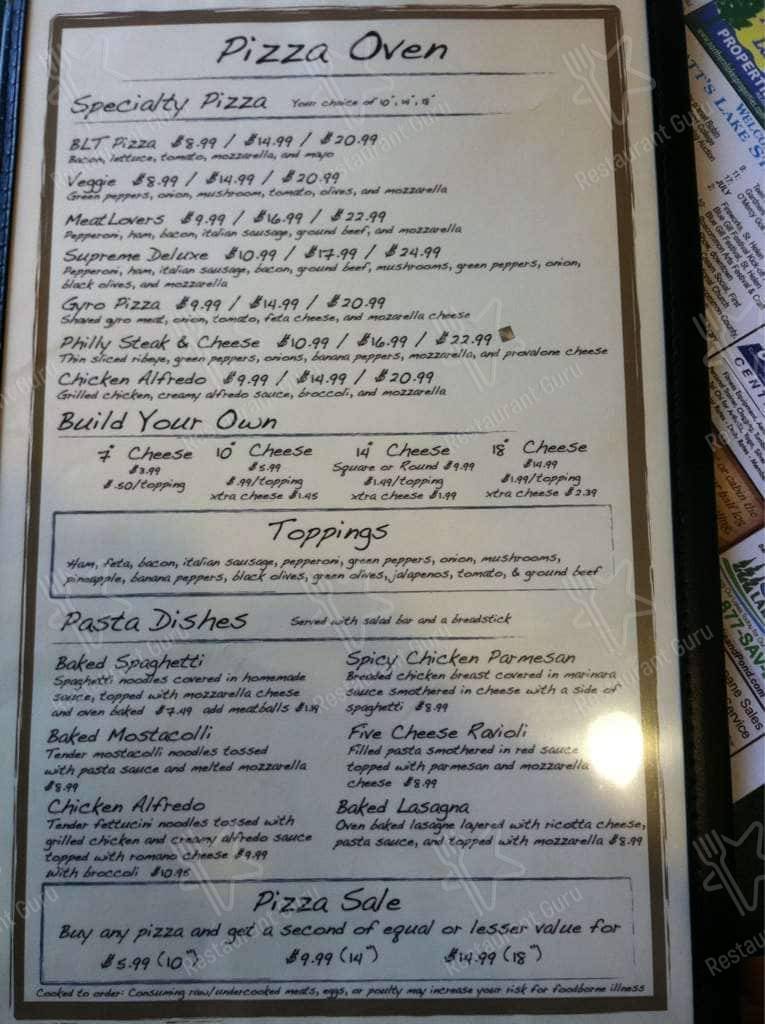 Pizza Oven
Specialty Pizza Your choice of 10", 14", 18"
BLT Pizza $8.99 / $14.99 / $20.99
Bacon, lettuce, tomato, mozzarella, and mayo
Veggie $8.99 / $14.99 / $20.99
Green peppers, onion, mushroom, tomato, olives, and mozzarella
MeatLovers $9.99 / $16.99 / $22.99
Pepperoni, ham, bacon, italian sausage, ground beef, and mozzarella
Supreme Deluxe $10.99 / $17.99 / $24.99
Pepperoni, ham, italian sausage, bacon, ground beef, mushrooms, green peppers, onion,
black olives, and mozzarella
Gyro Pizza $9.99 / $14.99 / $20.99
Shaved gyro meat, onion, tomato, feta cheese, and mozarella cheese
Philly Steak & Cheese $10.99 / $16.99 / $22.99
Thin sliced ribeye, green peppers, onions, banana peppers, mozzarella, and provalone cheese
Chicken Alfredo $9.99 / $14.99 / $20.99
Grilled chicken, creamy alfredo sauce, broccoli, and mozzarella
Build Your Own
7" Cheese 10" Cheese 14" Cheese 18" Cheese
$3.99 $5.99 Square or Round $9.99 $14.99
$.50/topping $.99/topping $1.49/topping $1.99/topping
xtra cheese $1.45 xtra cheese $1.99 xtra cheese $2.39
Toppings
Ham, feta, bacon, italian sausage, pepperoni, green peppers, onion, mushrooms,
pineapple, banana peppers, black olives, green olives, jalapenos, tomato, & ground beef
Pasta Dishes Served with salad bar and a breadstick
Baked Spaghetti
Spaghetti noodles covered in homemade
sauce, topped with mozzarella cheese
and oven baked $7.49 add meatballs
Baked Mostacolli
Tender mostacolli noodles tossed
with pasta sauce and melted mozzarella
$8.99
Chicken Alfredo
Tender fettucini noodles tossed with
grilled chicken and creamy alfredo sauce
topped with romano cheese $9.99
with broccoli $10.95
Spicy Chicken Parmesan
Breaded chicken breast covered in marinara
sauce smothered in cheese with a side of
spaghetti $8.99
Five Cheese Ravioli
Filled pasta smothered in red sauce
topped with parmesan and mozzarella
cheese $8.99
Baked Lasagna
Oven baked lasagne layered with ricotta cheese,
pasta sauce, and topped with mozzarella $8.99
Pizza Sale
Buy any pizza and get a second of equal or lesser value for
$5.99 (10") $9.99 (14") $14.99 (18")
Cooked to order: Consuming raw/undercooked meats, eggs, or poulty may increase your risk for foodborne illness
Restaurant Guru